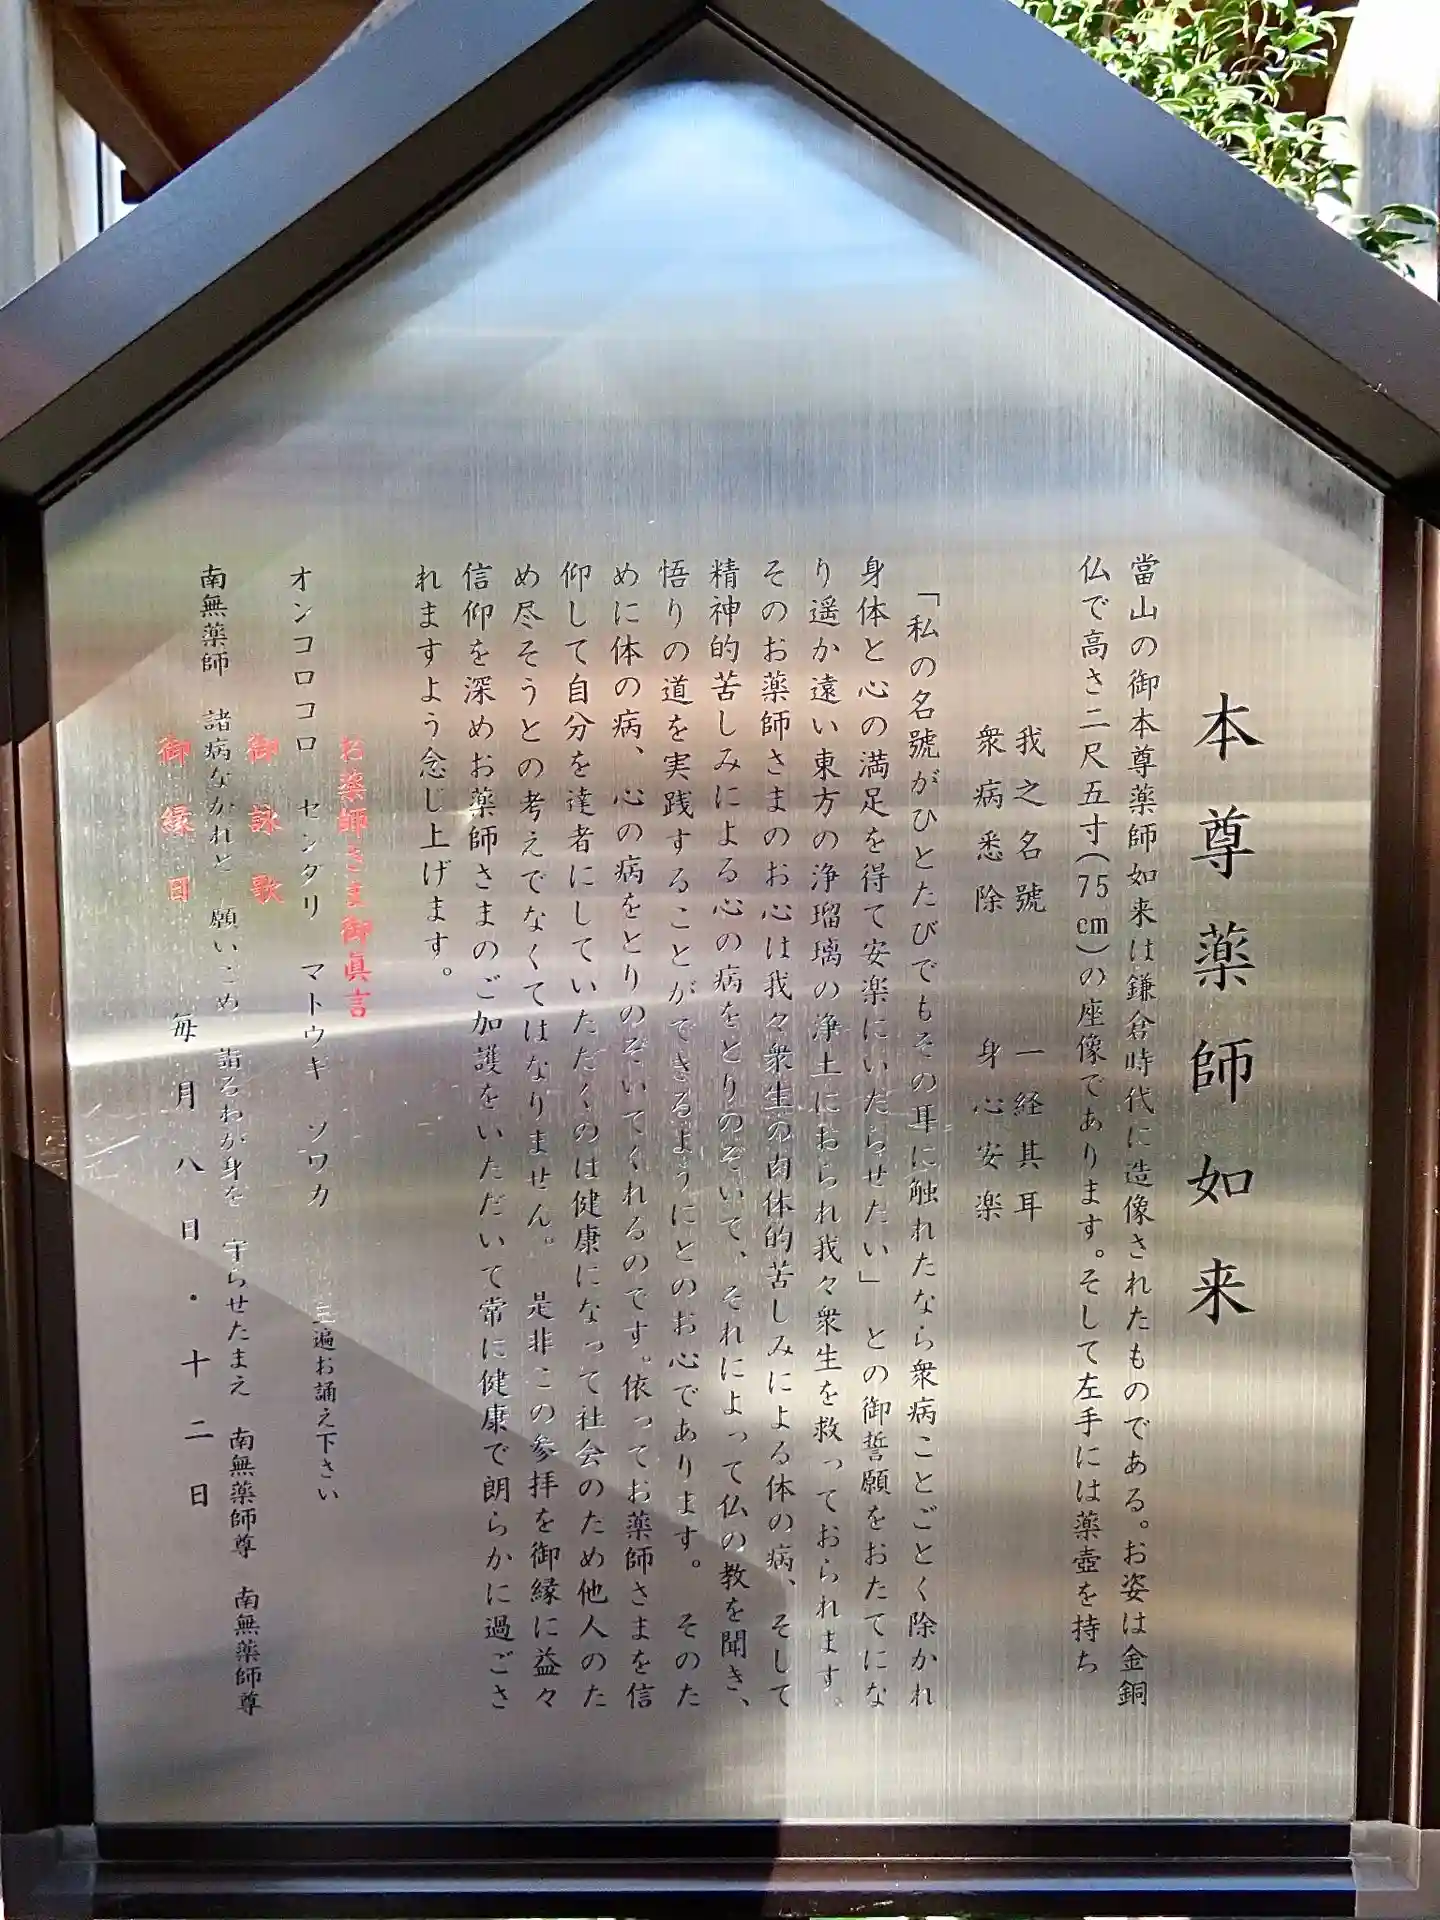 本尊薬師如来
當山の御本尊薬師如来は鎌倉時代に造像されたものである。お姿は金銅
仏で高さ二尺五寸(75cm)の座像であります。そして左手には薬壺を持ち
我之名號　一経其耳
衆病悉除　身心安楽
「私の名號がひとたびでもその耳に触れたなら衆病ことごとく除かれ
身体と心の満足を得て安楽にいたらせたい」との御誓願をおたてにな
り遥か遠い東方の浄瑠璃の浄土におられ我々衆生を救っておられます。
そのお薬師さまのお心は我々衆生の肉体的苦しみによる体の病、そして
精神的苦しみによる心の病をとりのぞいて、それによって仏の教を聞き、
悟りの道を実践することができるようにとのお心であります。　そのた
めに体の病、心の病をとりのぞいてくれるのです。依ってお薬師さまを信
仰して自分を達者にしていただくのは健康になって社会のため他人のた
め尽そうとの考えでなくてはなりません。　是非この参拝を御縁に益々
信仰を深めお薬師さまのご加護をいただいて常に健康で朗らかに過ごさ
れますよう念じ上げます。
お薬師さま御眞言
オンコロコロ　センダリ　マトウギ　ソワカ　三遍お誦え下さい
御詠歌
南無薬師　諸病なかれと　願いこめ　詣るわが身を　守らせたまえ　南無薬師尊　南無薬師尊
御縁日　毎月八日・十二日